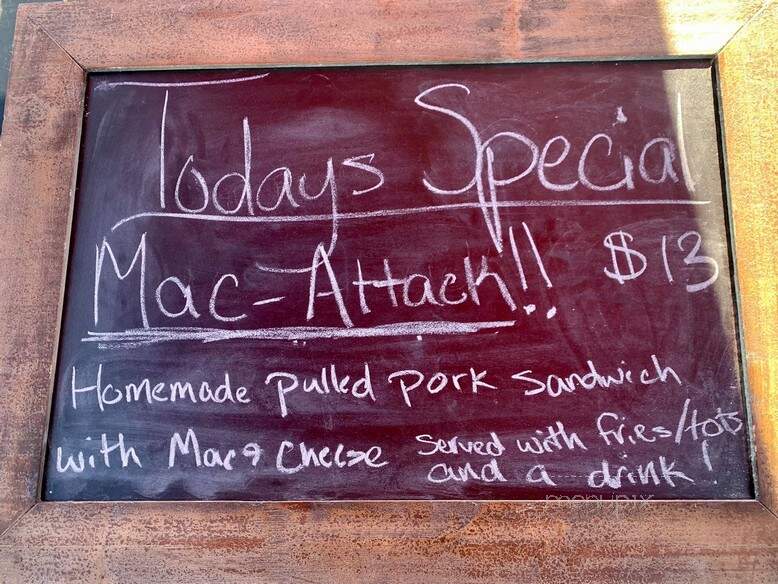 Todays Special
Mac-Attack!! $13
Homemade pulled pork sandwich
with Mac & Cheese served with fries/tots
and a drink!
menupix